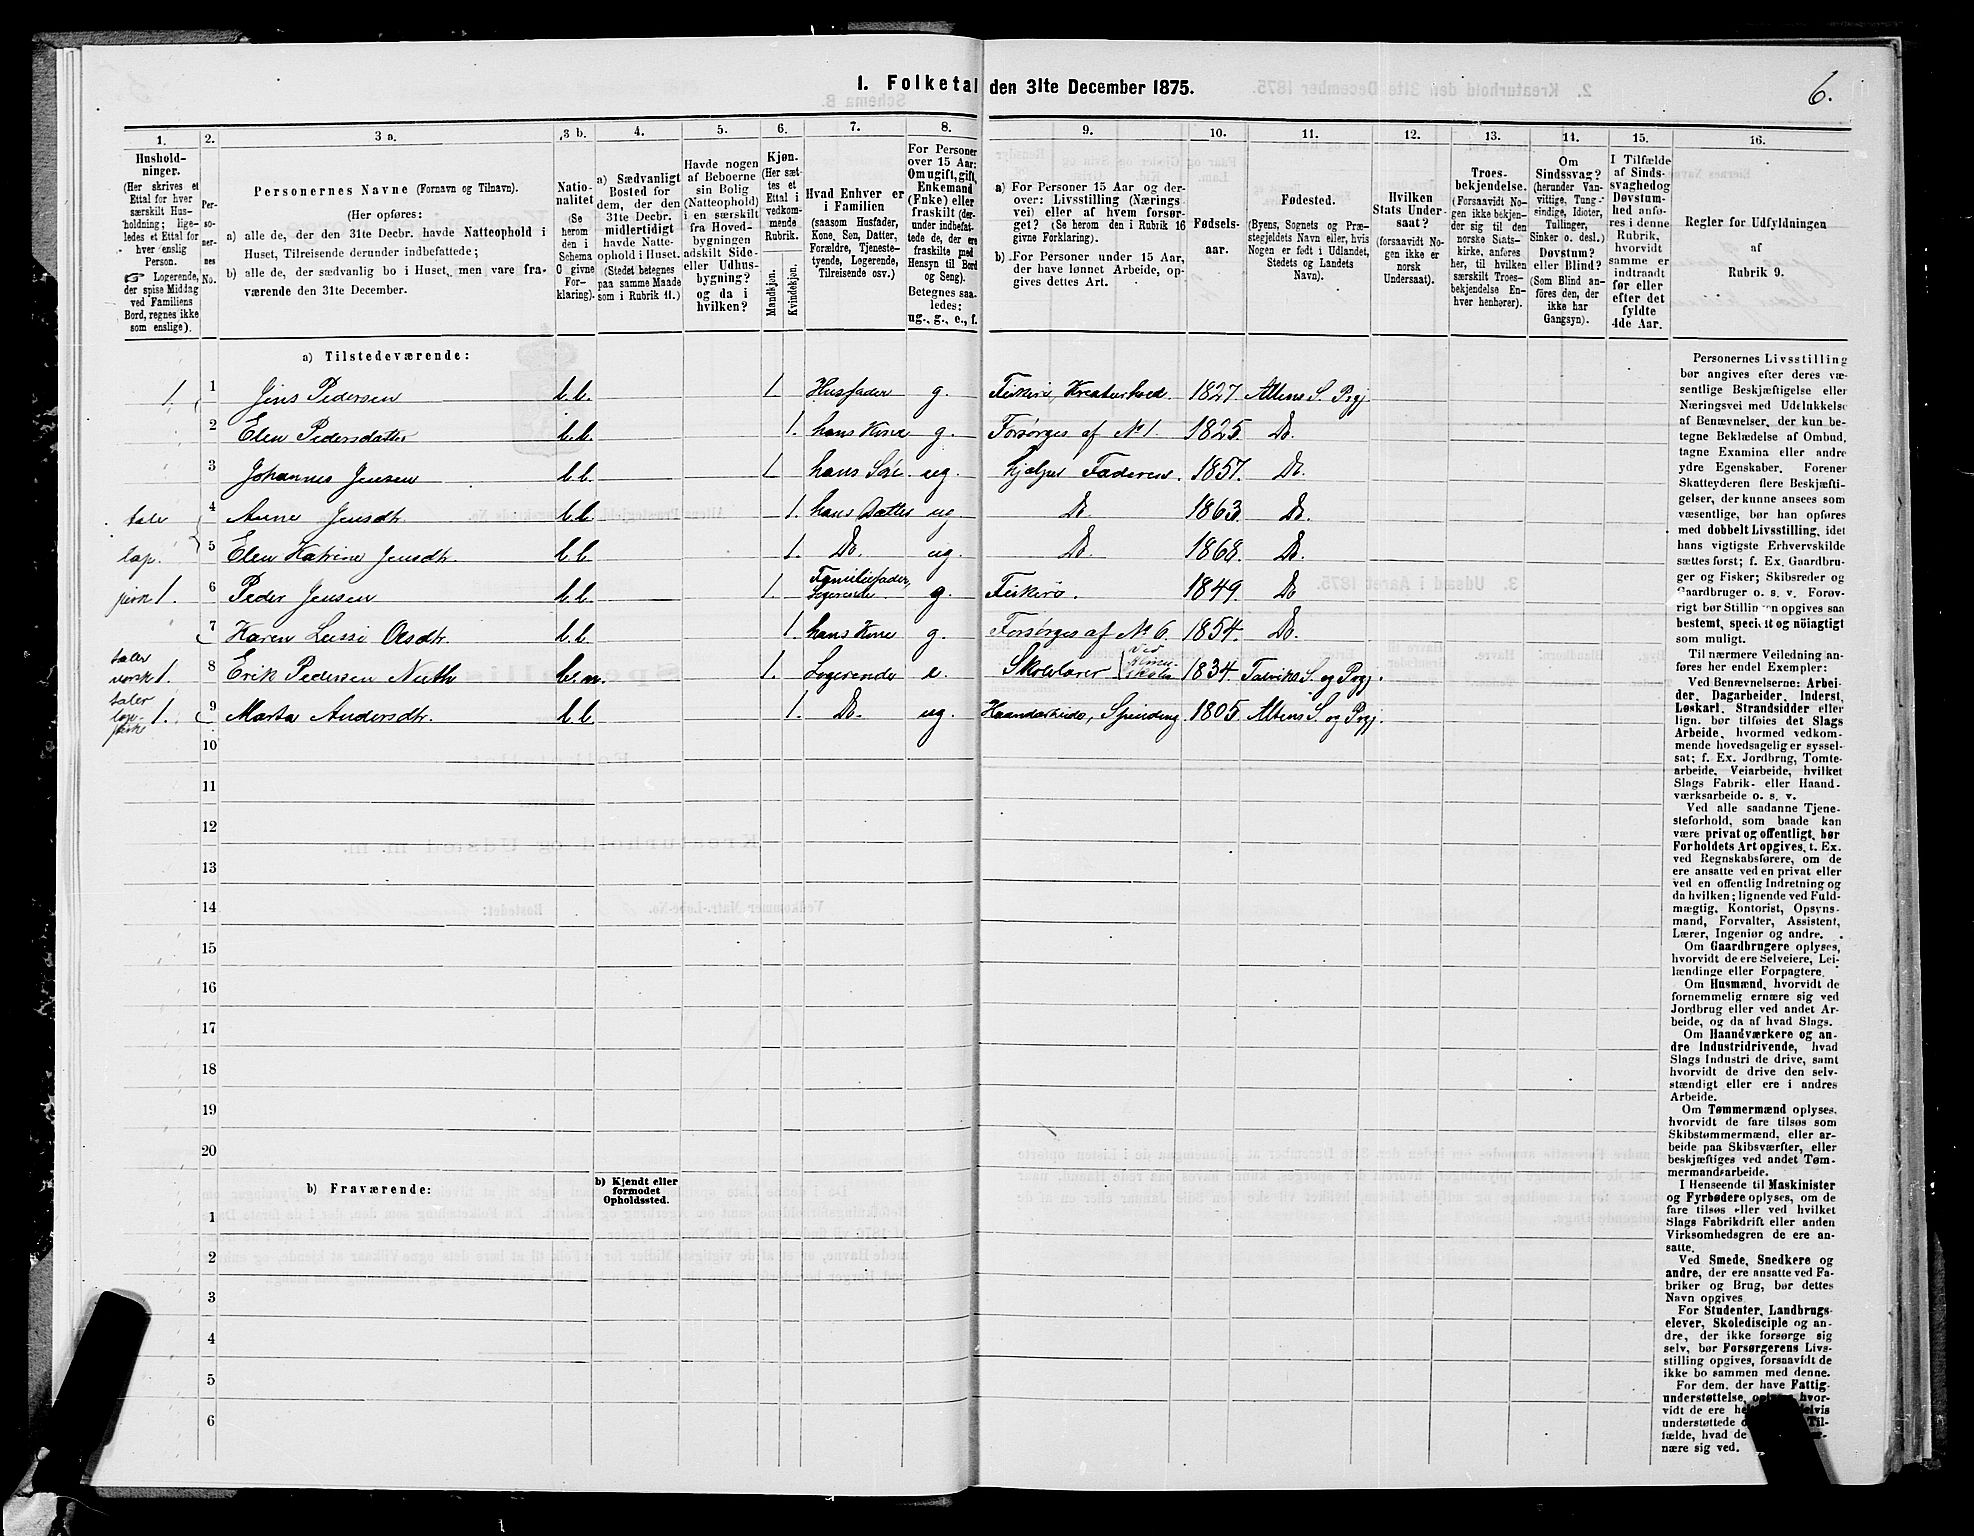 1. Folketal den 31te December 1875.
6.
1. 2. 3 a. 3 b. 4. 5. 6. 7. 8. 9. 10. 11. 12. 13. 14. 15. 16.
Hushold-
ninger.
(Her skrives et
Ettal for hver
særskilt Hus-
holdning; lige-
ledes et Ettal for
hver enslig
Person.
☞ Logerende,
der spise Middag
ved Familiens
Bord, regnes ikke
som enslige).
Per-
so-
ner-
nes
No.
Personernes Navne (Fornavn og Tilnavn).
(Her opføres:
a) alle de, der den 31te Decbr. havde Natteophold i
Huset, Tilreisende derunder indbefattede;
b) alle de, der sædvanlig bo i Huset, men vare fra-
værende den 31te December.
Natio-
nalitet
(Se
herom
den i
Schema
O givne
For-
klaring).
a) Sædvanligt
Bosted for
dem, der den
31te Decbr.
midlertidigt
havde Natte-
ophold i Huset.
(Stedet betegnes
paa samme Maade
som i Rubrik 11.)
Havde nogen
af Beboerne
sin Bolig
(Natteophold)
i en særskilt
fra Hoved-
bygningen
adskilt Side-
eller Udhus-
bygning?
og da i
hvilken?
Kjøn.
(Her sæt-
tes et
Ettal i
vedkom-
mende
Rubrik.
Mandkjøn.
Kvindekjøn.
Hvad Enhver er
i Familien
(saasom Husfader,
Kone, Søn, Datter,
Forældre, Tjeneste-
tyende, Logerende,
Tilreisende osv.)
For Personer
over 15 Aar:
Om ugift, gift,
Enkemand
(Enke) eller
fraskilt (der-
under indbefat-
tede de, der ere
fraskilte med
Hensyn til Bord
og Seng).
Betegnes saa-
ledes:
ug., g., e., f.
a) For Personer 15 Aar og der-
over: Livsstilling (Nærings-
vei) eller af hvem forsør-
get? (Se herom den i Rubrik 16
givne Forklaring).
b) For Personer under 15 Aar,
der have lønnet Arbeide, op-
gives dettes Art.
Fødsels-
aar.
Fødested.
(Byens, Sognets og Præ-
stegjeldets Navn eller, hvis
Nogen er født i Udlandet,
Stedets og Landets
Navn).
Hvilken
Stats Under-
saat?
(forsaavidt No-
gen ikke er
norsk
Undersaat).
Troes-
bekjendelse.
(Forsaavidt No-
gen ikke bekjen-
der sig til den
norske Stats-
kirke, anføres
her, til hvilken
særskilt Troes-
bekjendelse En-
hver henhører).
Om
Sindssvag?
(herunder Van-
vittige, Tung-
sindige, Idioter,
Tullinger,
Sinker o. desl.)
Døvstum?
eller Blind?
(Som Blind an-
føres den, der
ikke har
Gangsyn).
I Tilfælde
af Sinds-
svaghed og
Døvstum-
hed anfø-
res i denne
Rubrik,
hvorvidt
samme er
indtraadt
før eller
efter det
fyldte
4de Aar.
Regler for Udfyldningen
af
Rubrik 9.
a) Tilstedeværende:
1 1 Jens Pedersen b.b. 1 Husfader g. Fiskeri, Kreaturhold 1827 Altens S. Prgj
2 Elen Pedersdatter b.b. 1. hans Kone g. Forsørges af No 1. 1825. Do.
3 Johannes Jensen b.b. 1 hans Søn ug. hjelper Faderen. 1857. Do.
tale 4 Anne Jensdtr b.b. 1. hans Datter ug Do 1863. Do.
lap. 5 Elen Katrine Jensdtr. b.b. 1. Do. ug. Do. 1868. Do.
1. 6 Peder Jensen b.b. 1 Familiefader, Logerende g. Fiskeri. 1849. Do
7 Karen Olsdtr. b.b. 1. hans Kone g. Forsørges af No 6. 1854. Do.
taler
norsk 1. 8 Erik Pedersen b.n. 1. Logerende e. Skolelærer ved 1834 Talviks S. og Prgj.
taler
lap- 1. 9 Marta Andersdtr. b.b 1. Do. ug. Haandarbeide, Spinding 1805 Altens S. og Prgj.
10
11
12
13
14
15
16
17
18
19
20
b) Fraværende:
b) Kjendt eller
formodet
Opholdssted.
1
2
3
4
5
6
Personernes Livsstilling
bør angives efter deres væ-
sentlige Beskjæftigelse eller
Næringsvei med Udelukkelse
af Benævnelser, der kun be-
tegne Beklædelse af Ombud,
tagne Examina eller andre
ydre Egenskaber. Forener
Skatteyderen flere Beskjæfti-
gelser, der kunne ansees som
væsentlige, bør han opføres
med dobbelt Livsstilling, idet
hans vigtigste Erhvervskilde
sættes først; f. Ex. Gaardbru-
ger og Fisker; Skibsreder og
Gaardbruger o. s. v. Forøv-
rigt bør Stillingen opgives saa
bestemt, specielt og nøiagtigt
som muligt.
Til nærmere Veiledning an-
føres her endel Exempler:
Ved Benævnelserne: Arbei-
der, Dagarbeider, Inderst,
Løskarl, Strandsidder eller
lign. bør tilføies det Slags
Arbeide, hvormed vedkom-
mende hovedsagelig er syssel-
sat; f. Ex. Jordbrug, Tomte-
arbeide, Veiarbeide, hvilket
Slags Fabrik- eller Haand-
værksarbeide o. s. v.
Ved alle saadanne Tjene-
steforhold, som baade kan
være privat og offentligt, bør
Forholdets Art opgives, t. Ex.
ved Regnskabsførere, om de
ere ansatte ved en privat eller
ved en offentlig Indretning og
da hvilken; lignende ved Fuld-
mægtig, Kontorist, Opsyns-
mand, Forvalter, Assistent,
Lærer, Ingeniør og andre.
Om Gaardbrugere oplyses,
hvorvidt de ere Selveiere, Lei-
lændinge eller Forpagtere.
Om Husmænd, hvorvidt de
fornemmelig ernære sig ved
Jordbrug eller ved andet Ar-
beide, og da af hvad Slags.
Om Haandværkere og an-
dre Industridrivende, hvad
Slags Industri de drive, samt
hvorvidt de drive den selv-
stændigt eller ere i andres
Arbeide.
Om Tømmermænd oplyses,
hvorvidt de fare tilsøs som
Skibstømmermænd, eller ar-
beide paa Skibsværfter, eller
beskjæftiges ved andet Tøm-
mermandsarbeide.
I Henseende til Maskinister
og Fyrbødere oplyses, om de
fare tilsøs eller ved hvilket
Slags Fabrikdrift eller anden
Virksomhedsgren de ere an-
satte.
Ved Smede, Snedkere og
andre, der ere ansatte ved Fa-
briker og Brug, bør dettes
Navn opgives.
For Studenter, Landbrugs-
elever, Skoledisciple og an-
dre, der ikke forsørge sig
selv, bør Forsørgerens Livs-
stilling opgives, forsaavidt de
ikke bo sammen med denne.
For dem, der have Fattig-
understøttelse, hvor-
vidt de ere
understøttede Til-
fælde, hvad de
nære sig ved.